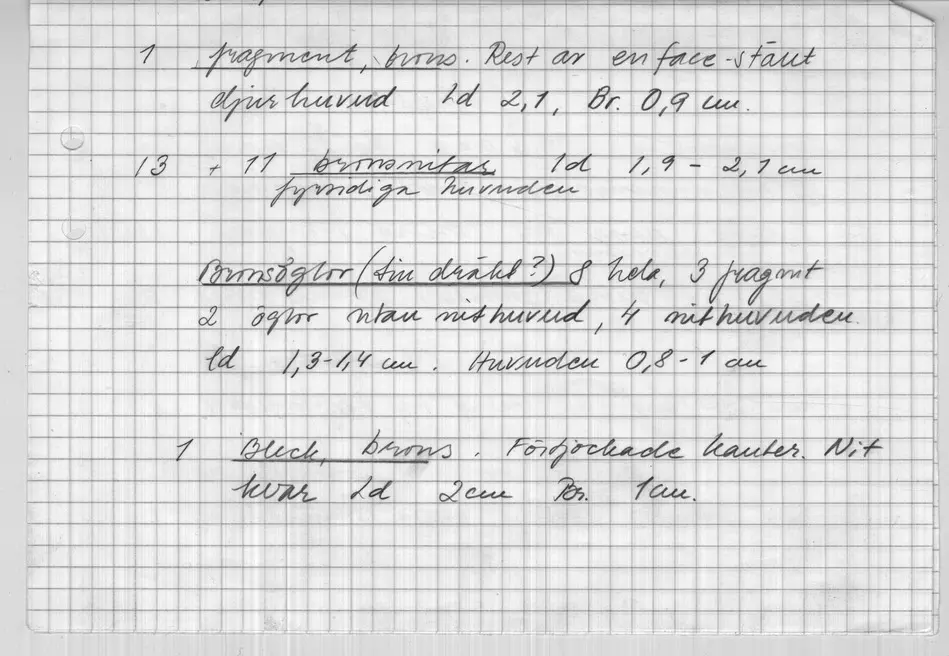 1 fragment, brons. Rest av en face-ställt
djurhuvud Ld 2,1, Br. 0,9 cm.
13 + 11 bronsnitar ld 1,9 - 2,1 cm
fyrsidiga huvuden
Bronsöglor (till dräkt?) 8 hela, 3 fragmt
2 öglor utan nithuvud, 4 nithuvuden.
ld 1,3-1,4 cm. Huvuden 0,8-1 cm
1 Bleck, brons. Förtjockade kanter. Nit
kvar Ld 2cm Br. 1cm.